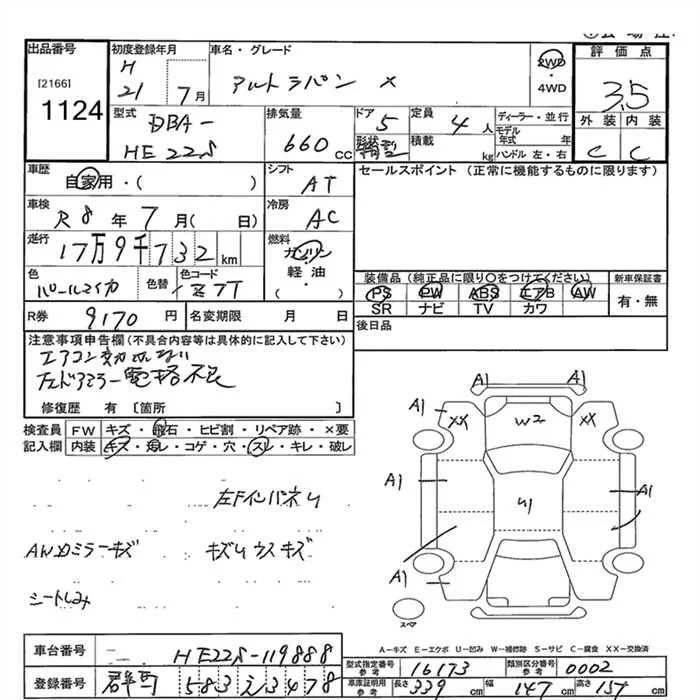 出品番号
[2166]
1124
初度登録年月
H
21 7月
車名・グレード
アルトラパン X
2WD
・
4WD
評価点
3.5
外装 内装
C C
型式
DBA-
HE22S
排気量
660 CC
ドア
5
形状
定員
4 人
積載
kg
ディーラー・並行
モデル
年式 年
ハンドル 左・右
車歴
自家用・( )
シフト
AT
セールスポイント (正常に機能するものに限ります)
車検
R8年7月( 日)
冷房
AC
走行
17万9千732 km
燃料
ガソリン
・
軽油
( )
色
パールマイカ
色替
色コード
Z7T
装備品 (純正品に限り○をつけてください)
PS PW ABS エアB AW
SR ナビ TV カワ
新車保証書
有・無
R券
9170円
名変期限 月 日
後日品
注意事項申告欄(不具合内容等は具体的に記入して下さい)
エアコン効かない
左ドアミラー電格不良
修復歴 有 [箇所 ]
検査員
記入欄
FW キズ・飛石・ヒビ割・リペア跡・×要
内装 キズ・汚レ・コゲ・穴・スレ・キレ・破レ
左FインパネU
AWカミラーキズ
キズUウスキズ
シートしみ
A1 A1
A1 XX W2 XX
A1 U1 A1
A1 A1
スペア
A-キズ E-エクボ U-凹み W-補修跡 S-サビ C-腐食 XX-交換済
車台番号
HE22S-119888
登録番号
群馬 583 え 3478
型式指定番号
参考
16173
類別区分番号
参考
0002
車庫証明用
参考
長さ 339 cm 幅 147 cm 高さ 151 cm